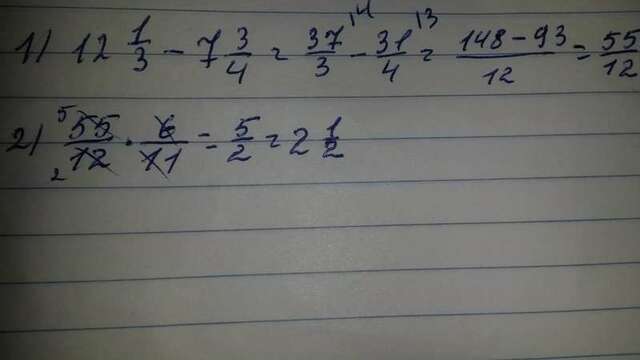 1) 12 1/3 - 7 3/4 = 37/3 ^{14} - 31/4 ^{13} = (148 - 93)/12 = 55/12
2) ^{5}55/_{2}12 · 6/11 = 5/2 = 2 1/2